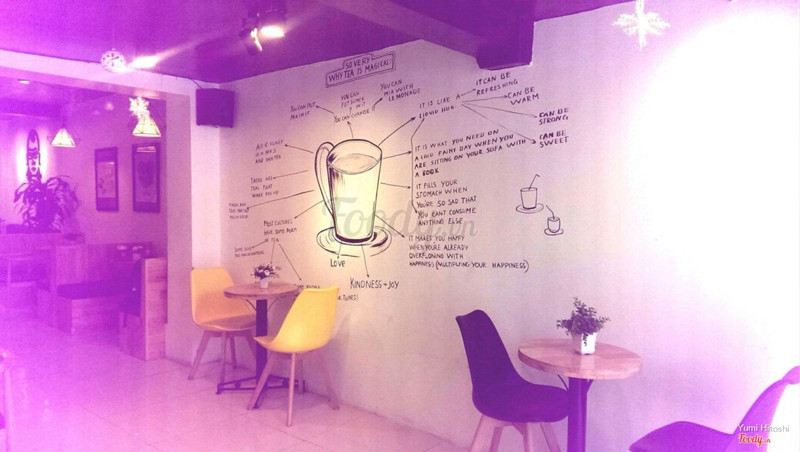 SO VERY
WHY TEA IS MAGICAL!
YOU CAN PUT
MILK IN IT
YOU CAN
PUT
IN IT
YOU CAN
YOU CAN
MIX WITH
LEMONADE
IT IS LIKE A
LIQUID HUG
IT CAN BE
REFRESHING
CAN BE
WARM
CAN BE
STRONG
CAN BE
SWEET
IT IS WHAT YOU NEED ON
A COLD RAINY DAY WHEN YOU
ARE SITTING ON YOUR SOFA WITH
A BOOK
IT FILLS YOUR
STOMACH WHEN
YOU'RE SO SAD THAT
YOU CANT CONSUME
ANYTHING ELSE
IT MAKES YOU HAPPY
WHEN YOU'RE ALREADY
OVERFLOWING WITH
HAPPINESS (MULTIPLYING YOUR HAPPINESS)
THERE ARE
TEAS THAT
WAKE YOU UP
MOST CULTURES
HAVE SOME FORM
OF TEA
LOVE
KINDNESS + JOY
Foody.vn
Yumi Hitoshi
Foody.vn